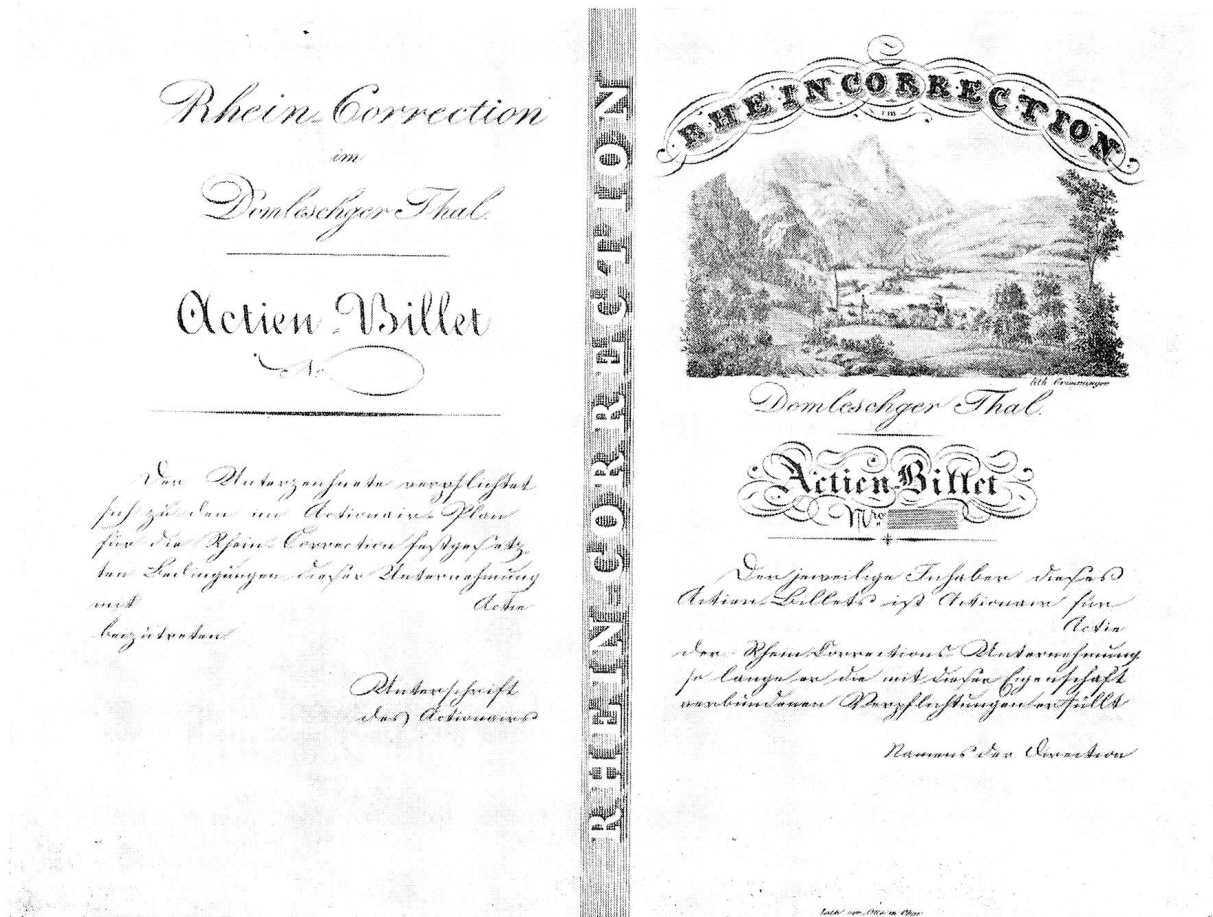 Rhein-Correction
im
Domleschger Thal.
Actien-Billet
No
Der Unterzeichnete verpflichtet
sich zu den im Actionair-Plan
für die Rhein-Correction festgesetz-
ten Bedingungen dieser Unternehmung
mit Actie
beizutreten.
Unterschrift
des Actionairs
RHEIN-CORRECTION
RHEINCORRECTION
im
Domleschger Thal.
Actien-Billet
Nro
Der jeweilige Inhaber dieses
Actien-Billets ist Actionair für
Actie
der Rhein-Corrections-Unternehmung
so lange er die mit dieser Eigenschaft
verbundenen Verpflichtungen erfüllt
Namens der Direction